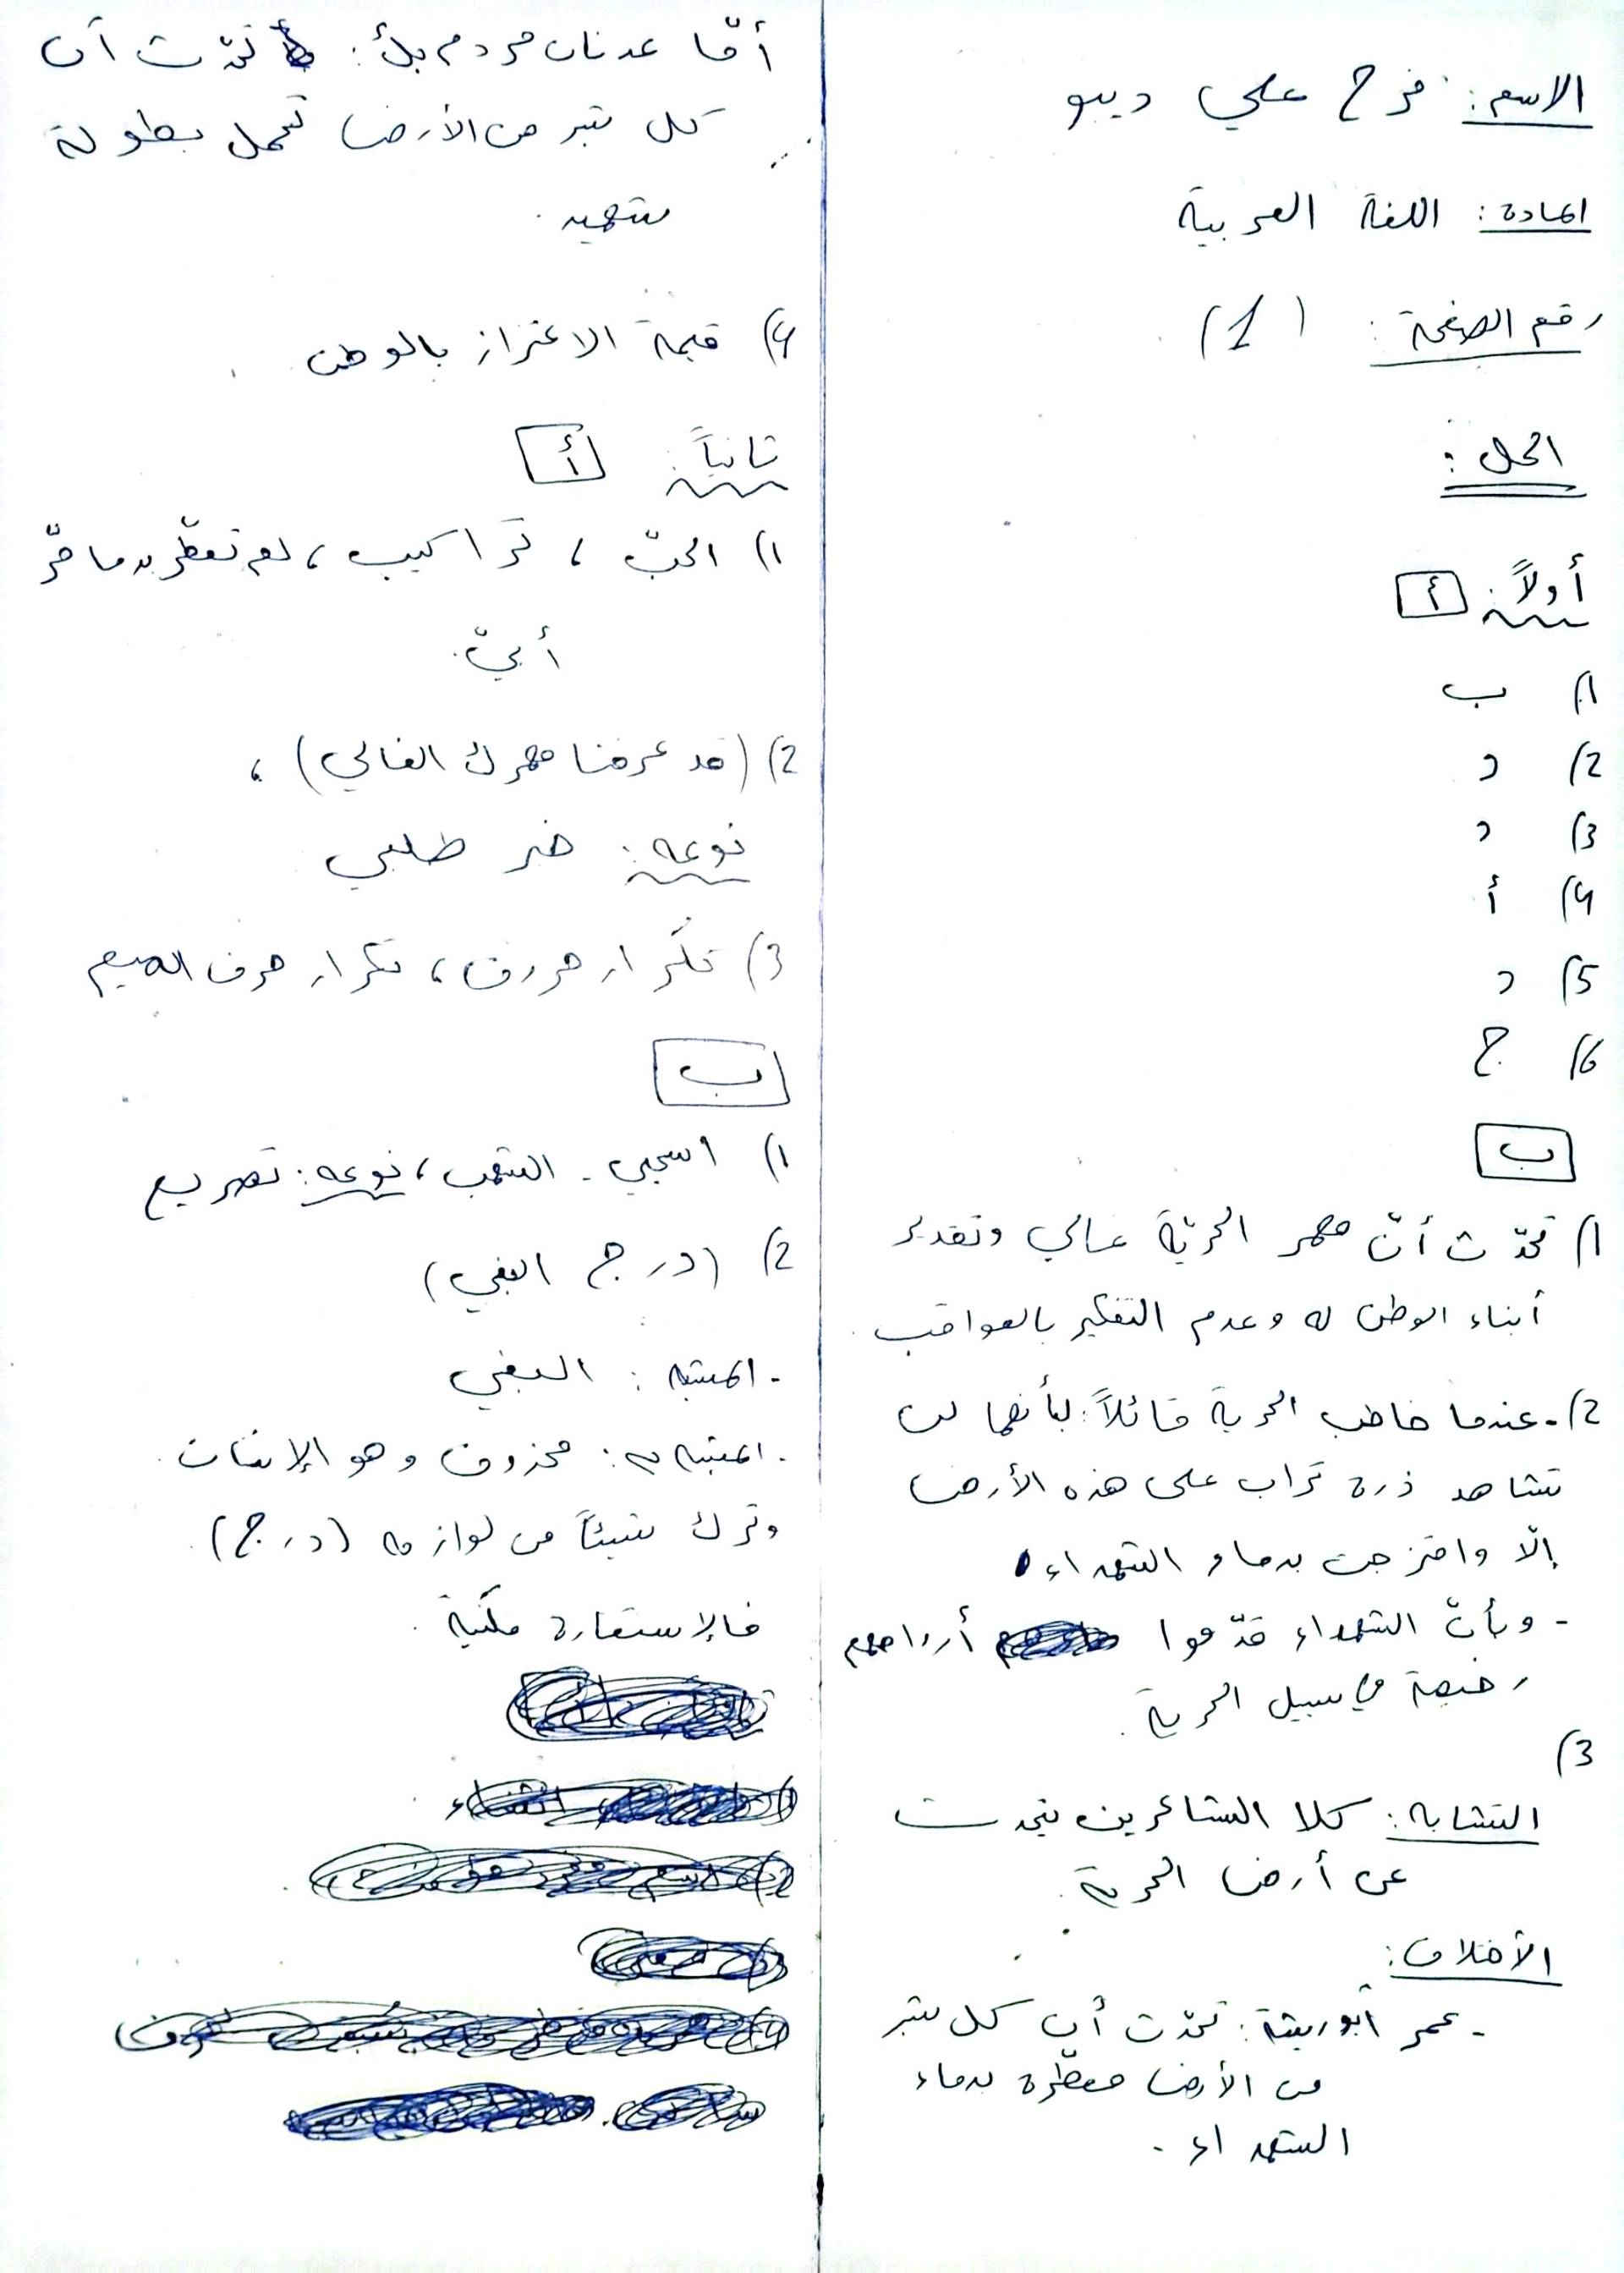 الاسم: فرح علي ديبو
المادة: اللغة العربية
رقم الصفحة: (1)
الحل:
أولاً: أ
1) ب
2) د
3) د
4) أ
5) د
6) ج
ب
1) تحدّث أنّ مهر الحريّة غالي وتقدير
أبناء الوطن له وعدم التفكير بالعواقب.
2) - عندما خاطب الحرية قائلاً: بأنها لن
تشاهد ذرة تراب على هذه الأرض
إلّا وامتزجت بدماء الشهداء
- وبأنّ الشهداء قدّموا أرواحهم
رخيصة في سبيل الحرية.
3)
التشابه: كلا الشاعرين تحدث
عن أرض الحرية.
الأختلاف:
- عمر أبو ريشة: تحدّث أن كل شبر
من الأرض معطّرة بدماء
الشهداء.
أمّا عدنان مردم بك: تحدّث أن
كل شبر من الأرض تحمل بطولة
شهيد.
4) قيمة الاعتزاز بالوطن.
ثانياً: أ
1) الحبّ، تراكيب، لم تعطّر بدما حرّ
أبيّ.
2) (قد عرفنا مهرك الغالي)،
نوعه: خبر طلبي
3) تكرار حروف، تكرار حرف الميم
ب
1) اسحبي - الشهب، نوعه: تصريع
2) (درج البغي)
- المشبه: البغي
- المشبه به: محذوف وهو الإنسان.
وترك شيئاً من لوازمه (درج).
فالإستعارة مكنية.